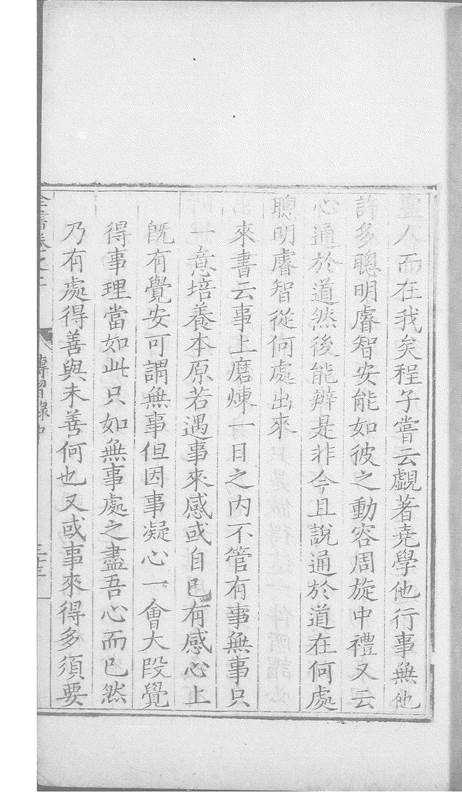 聖人而在我矣程子嘗云覷著堯學他行事無他
許多聰明睿智安能如彼之動容周旋中禮又云
心通於道然後能辨是非今且說通於道在何處
聰明睿智從何處出來
來書云事上磨煉一日之内不管有事無事只
一意培養本原若遇事來感或自己有感心上
旣有覺安可謂無事但因事凝心一會大段覺
得事理當如此只如無事處之盡吾心而已然
乃有處得善與未善何也又或事來得多須要
全書卷之二
傳習錄中